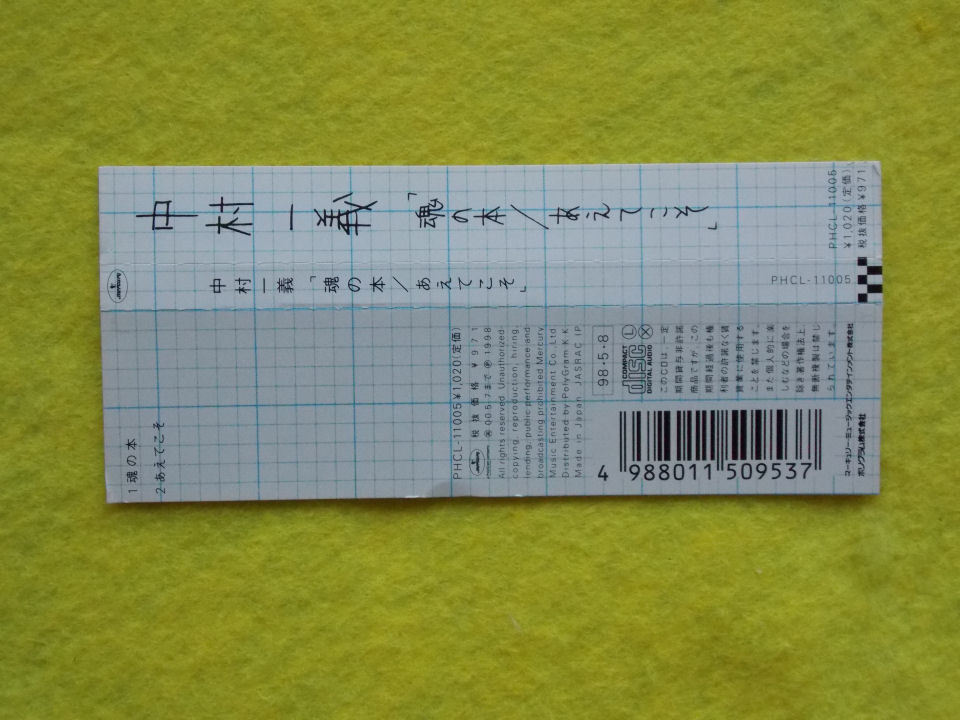 中村一義「魂の本/あえてこそ」
PHCL-11005
¥1,020(定価)
税抜価格 ¥971
mercury
中村一義「魂の本/あえてこそ」
PHCL-11005
1 魂の本
2 あえてこそ
PHCL-11005 ¥1,020(定価)
税抜価格 ¥971
00.5.7まで Ⓟ 1998
All rights reserved. Unauthorized
copying, reproduction, hiring,
lending, public performance and
broadcasting prohibited. Mercury
Music Entertainment Co., Ltd.
Distributed by PolyGram K.K.
Made in Japan JASRAC IP
98・5・8
Ⓛ
Ⓧ
COMPACT
disc
DIGITAL AUDIO
このCDは、一定
期間貸与非許諾
商品ですが、この
期間経過後も権
利者の許諾なく賃
貸業に使用する
ことを禁じます。
また個人的に楽
しむなどの場合を
除き著作権法上、
無断複製は禁じ
られています。
4 988011 509537
マーキュリー・ミュージックエンタテインメント株式会社
ポリグラム株式会社